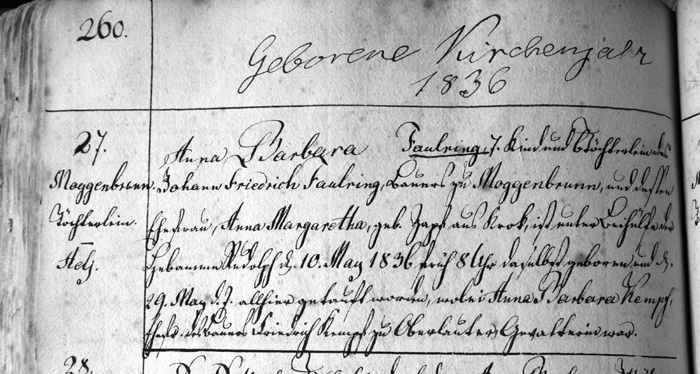 260.
Geborene Kirchenjahr
1836
27.
Moggenbrunn.
Töchterlein.
Adj.
Anna Barbara Faulring, 7. Kind und Töchterlein des
Johann Friedrich Faulring, Bauers zu Moggenbrunn, und dessen
Ehefrau, Anna Margaretha, geb. Zapf aus Krok, ist unter Beihülfe der
Hebamme Rudolph d. 10. May 1836 früh 8 Uhr daselbst geboren und d.
29. May d. J. allhier getauft worden, wobei Anna Barbara Kempf,
des Bauers Friedrich Kempf zu Oberlauter, Gevatterin war.
28.